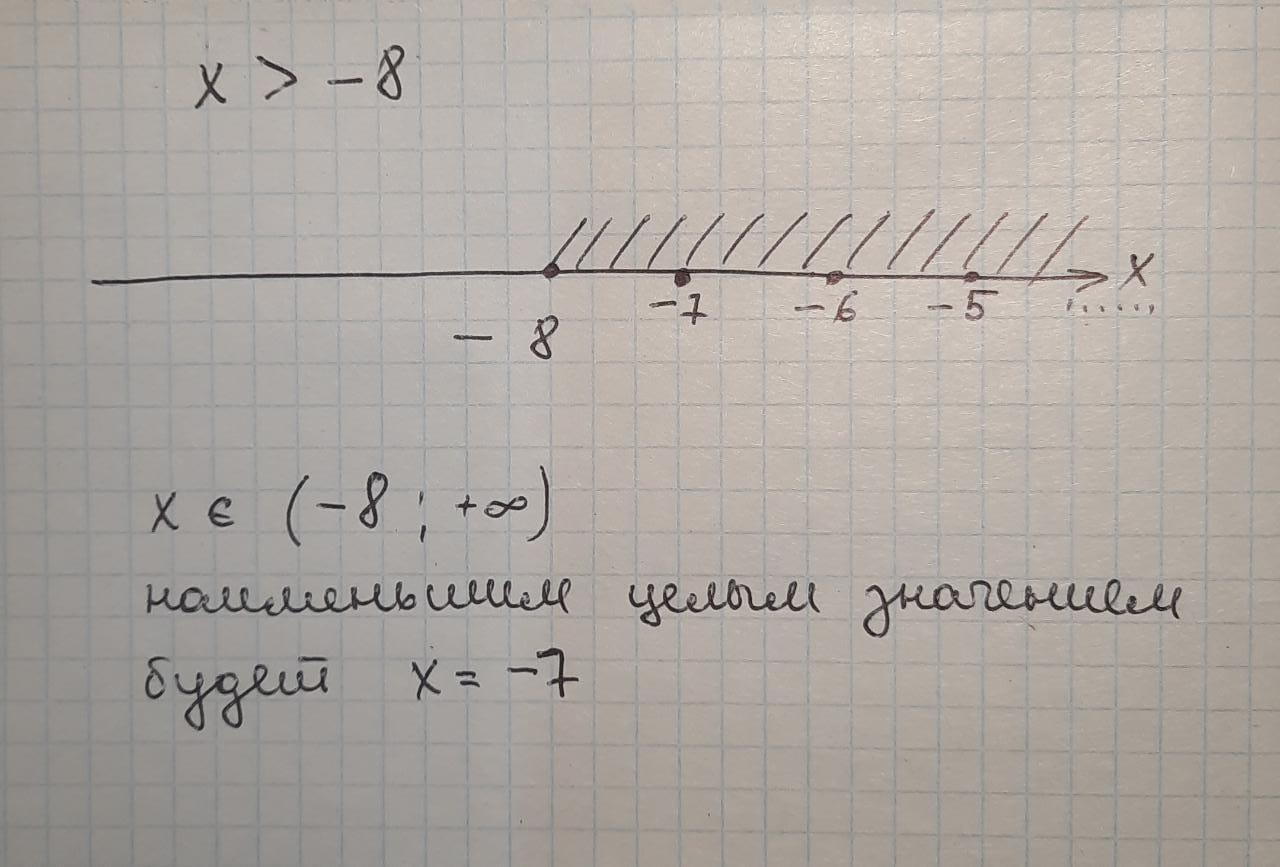 x > -8
-8 -7 -6 -5 ...... x
x ∈ (-8 ; +∞)
наименьшим целым значением
будет x = -7